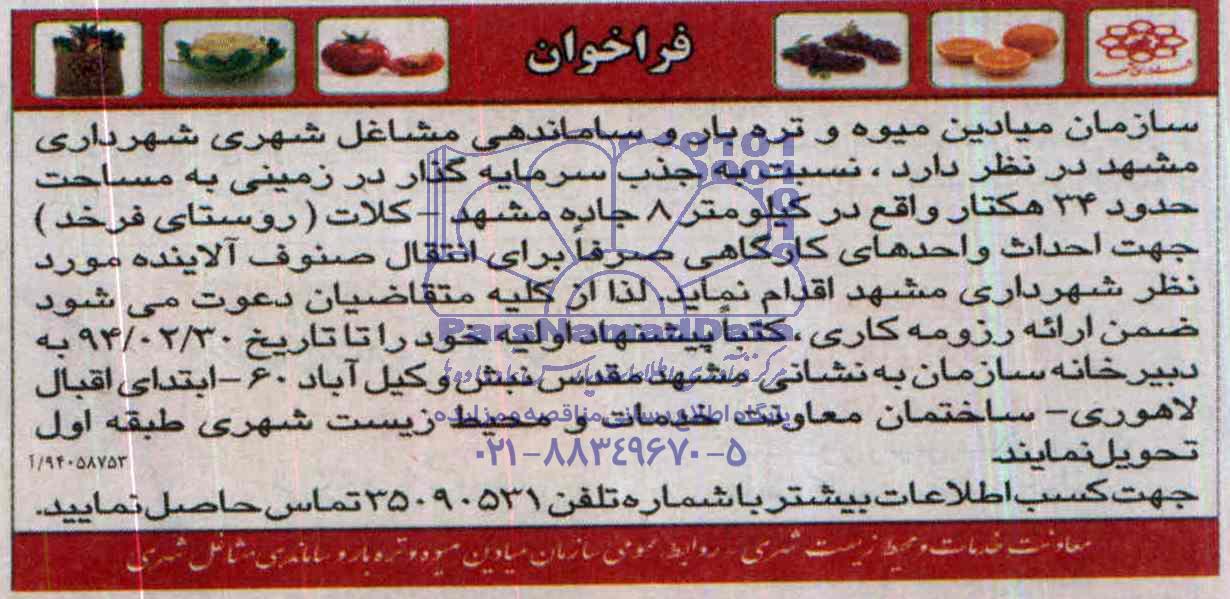 فراخوان
سازمان میادین میوه و تره بار و ساماندهی مشاغل شهری شهرداری
مشهد در نظر دارد ، نسبت به جذب سرمایه گذار در زمینی به مساحت
حدود ۳۴ هکتار واقع در کیلومتر ۸ جاده مشهد - کلات ( روستای فرخد )
جهت احداث واحدهای کارگاهی صرفاً برای انتقال صنوف آلاینده مورد
نظر شهرداری مشهد اقدام نماید. لذا از کلیه متقاضیان دعوت می شود
ضمن ارائه رزومه کاری ، کتباً پیشنهاد اولیه خود را تا تاریخ ۹۴/۰۲/۳۰ به
ParsNamadData
دبیرخانه سازمان به نشانی مشهد مقدس نبش وکیل آباد ۶۰ - ابتدای اقبال
لاهوری - ساختمان معاونت خدمات و محیط زیست شهری طبقه اول
پایگاه اطلاع رسانی مناقصه و مزایده
تحویل نمایند.
۰۲۱-۸۸۳۴۹۶۷۰-۵
۹۴۰۵۸۷۵۳/آ
جهت کسب اطلاعات بیشتر با شماره تلفن ۳۵۰۹۰۵۳۱ تماس حاصل نمایید.
معاونت خدمات و محیط زیست شهری - روابط عمومی سازمان میادین میوه و تره بار و ساماندهی مشاغل شهری